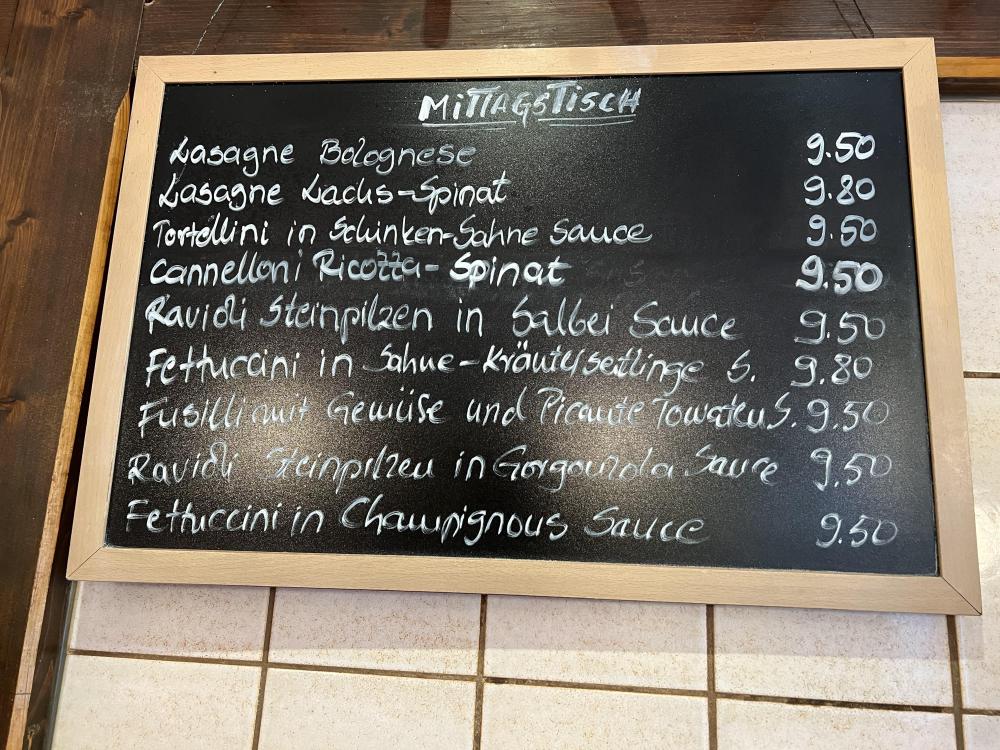 MITTAGSTISCH
Lasagne Bolognese 9.50
Lasagne Lachs-Spinat 9.80
Tortellini in Schinken-Sahne Sauce 9.50
Cannelloni Ricotta-Spinat 9.50
Ravioli Steinpilzen in Salbei Sauce 9.50
Fettuccini in Sahne-Kräuterseitlinge S. 9.80
Fusilli mit Gemüse und Picante Tomaten S. 9.50
Ravioli Steinpilzen in Gorgonzola Sauce 9.50
Fettuccini in Champignons Sauce 9.50